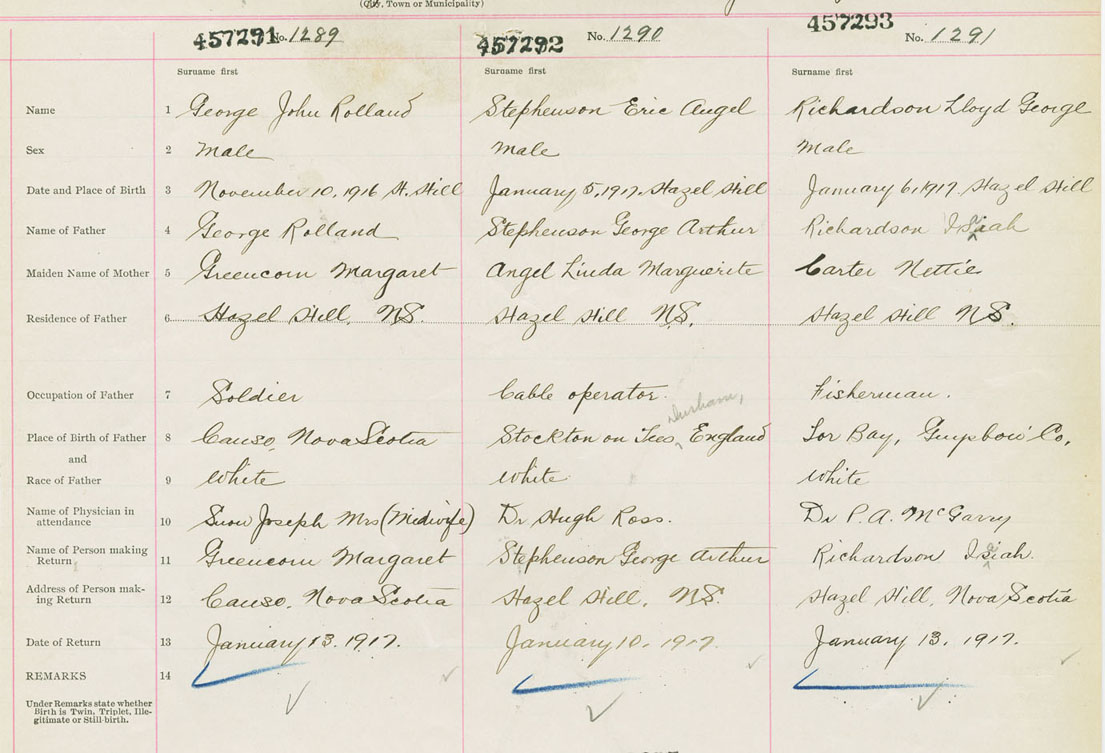 (City, Town or Municipality)
457291 No. 1289 457292 No. 1290 457293 No. 1291
Surname first Surname first Surname first
Name 1 George John Rolland Stephenson Eric Angel Richardson Lloyd George
Sex 2 Male Male Male
Date and Place of Birth 3 November 10, 1916 H. Hill January 5, 1917. Hazel Hill January 6, 1917. Hazel Hill
Name of Father 4 George Rolland Stephenson George Arthur Richardson Isaiah
Maiden Name of Mother 5 Greencorn Margaret Angel Linda Marguerite Carter Nettie
Residence of Father 6 Hazel Hill, N.S. Hazel Hill N.S. Hazel Hill N.S.
Occupation of Father 7 Soldier Cable operator. Fisherman.
Durham,
Place of Birth of Father 8 Canso, Nova Scotia Stockton on Tees, England Tor Bay, Guysboro' Co.
and
Race of Father 9 White White White
Name of Physician in
attendance 10 Snow Joseph Mrs (Midwife) Dr Hugh Ross. Dr P. A. McGarry
Name of Person making
Return 11 Greencorn Margaret Stephenson George Arthur Richardson Isaiah.
Address of Person mak-
ing Return 12 Canso, Nova Scotia Hazel Hill, N.S. Hazel Hill, Nova Scotia
Date of Return 13 January 13. 1917. January 10, 1917. January 13, 1917.
REMARKS 14
Under Remarks state whether
Birth is Twin, Triplet, Ille-
gitimate or Still-birth.